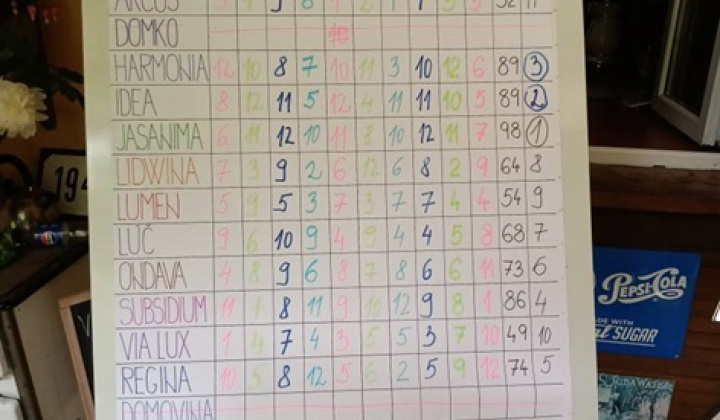 DOMKO
HARMONIA 12 10 8 7 10 11 3 10 12 6 89 3
IDEA 8 12 11 5 12 4 11 11 10 5 89 2
JASANIMA 6 11 12 10 11 8 10 12 11 7 98 1
LIDWINA 7 3 9 2 6 12 6 8 2 9 64 8
LUMEN 5 9 5 3 7 3 7 7 4 4 54 9
LÚČ 9 6 10 9 4 9 4 4 5 8 68 7
ONDAVA 4 8 9 6 8 7 8 6 6 11 73 6
SUBSIDIUM 11 7 8 11 9 10 12 9 8 1 86 4
VIA LUX 1 4 7 4 3 5 5 3 7 10 49 10
REGINA 10 5 8 12 5 6 2 5 9 12 74 5
DOMOVINA
194
PEPSI-COLA
MADE WITH
SUGAR